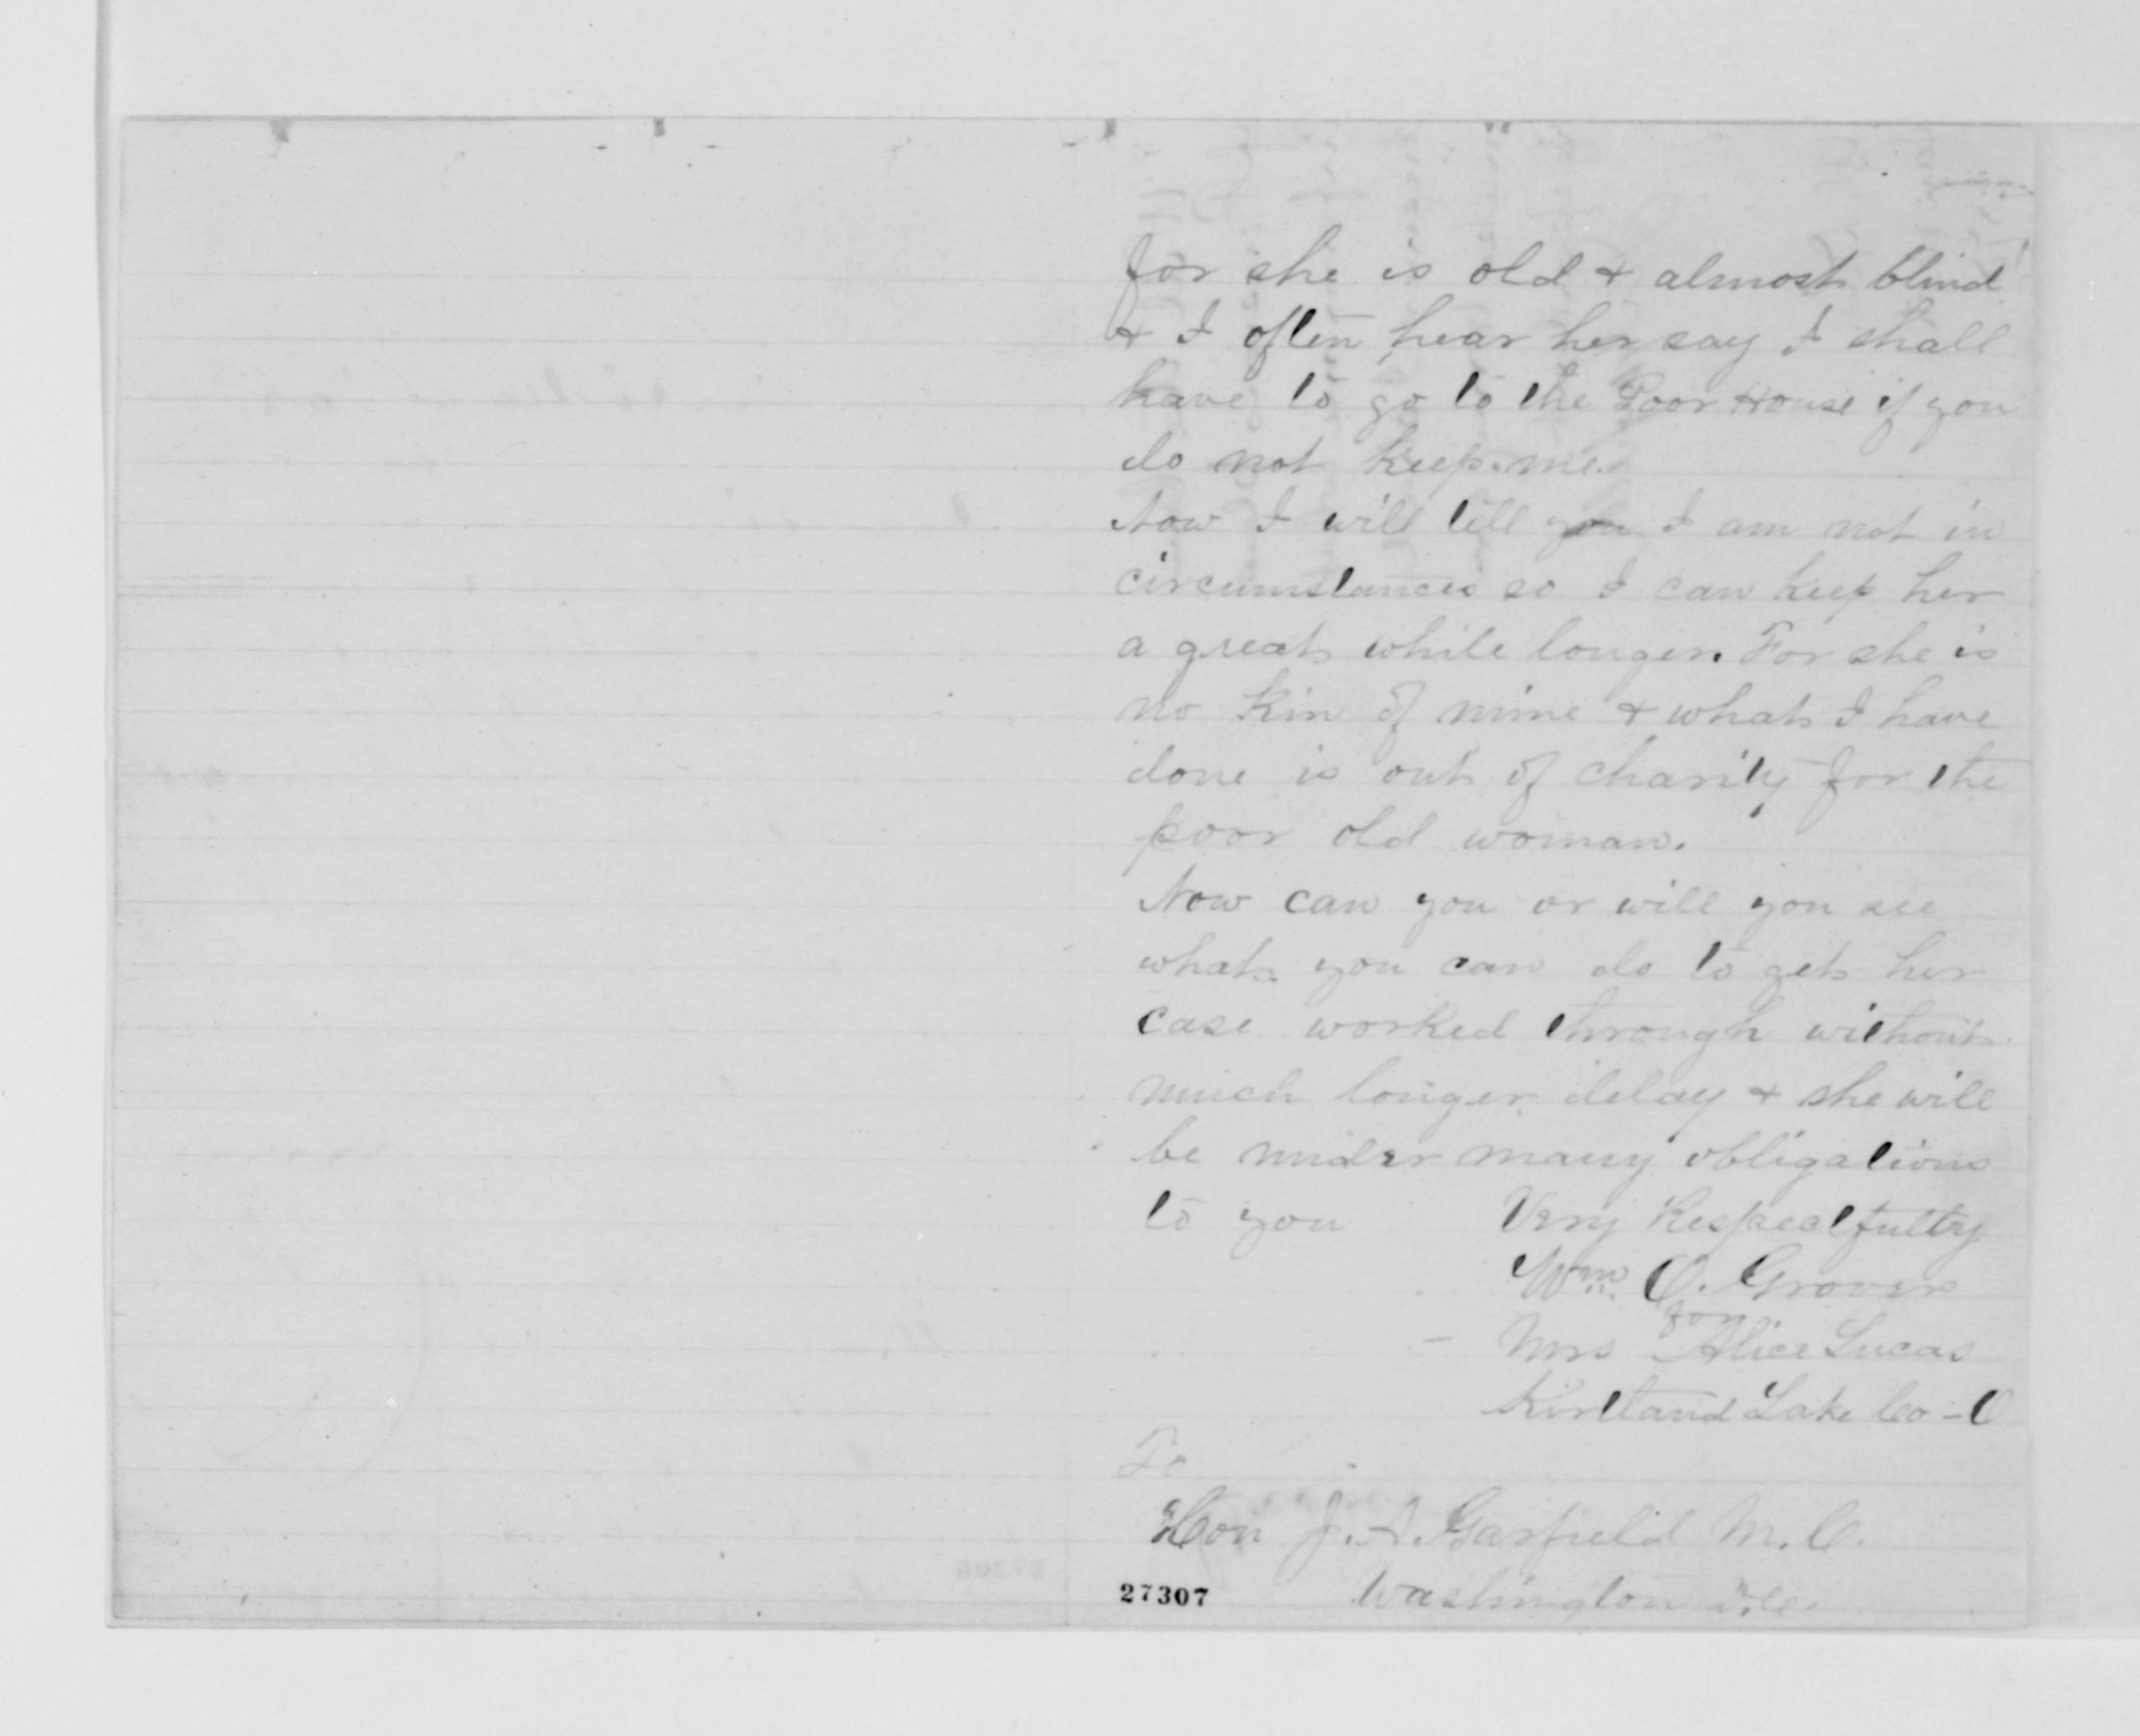 for she is old & almost blind
& I often hear her say I shall
have to go to the Poor House if you
do not keep me.
Now I will tell you I am not in
circumstances so I can keep her
a great while longer. For she is
no kin of mine & what I have
done is out of charity for the
poor old woman.
Now can you or will you see
what you can do to get her
case worked through without
much longer delay & she will
be under many obligations
to you Very Respectfully
Wm. O. Grover
for
Mrs Alice Lucas
Kirtland Lake Co - O
To
Hon J. A. Garfield M. C.
Washington D.C.
27307